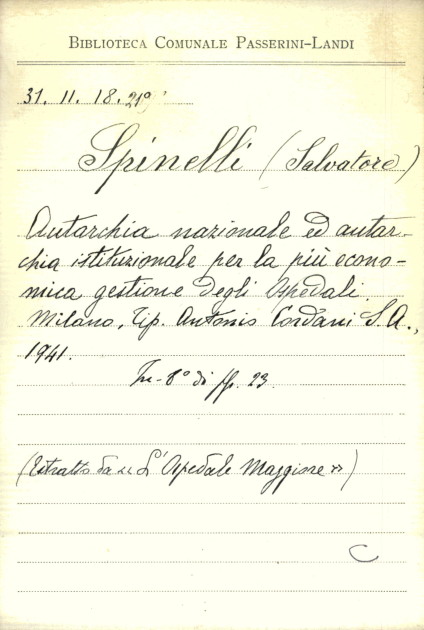 BIBLIOTECA COMUNALE PASSERINI-LANDI
31. 11. 18. 21º
Spinelli (Salvatore)
Autarchia nazionale ed autar-
chia istituzionale per la più econo-
mica gestione degli Ospedali.
Milano, Tip. Antonio Cordani S.A.,
1941.
In-8º di pp. 23.
(Estratto da « L'Ospedale Maggiore »)
C